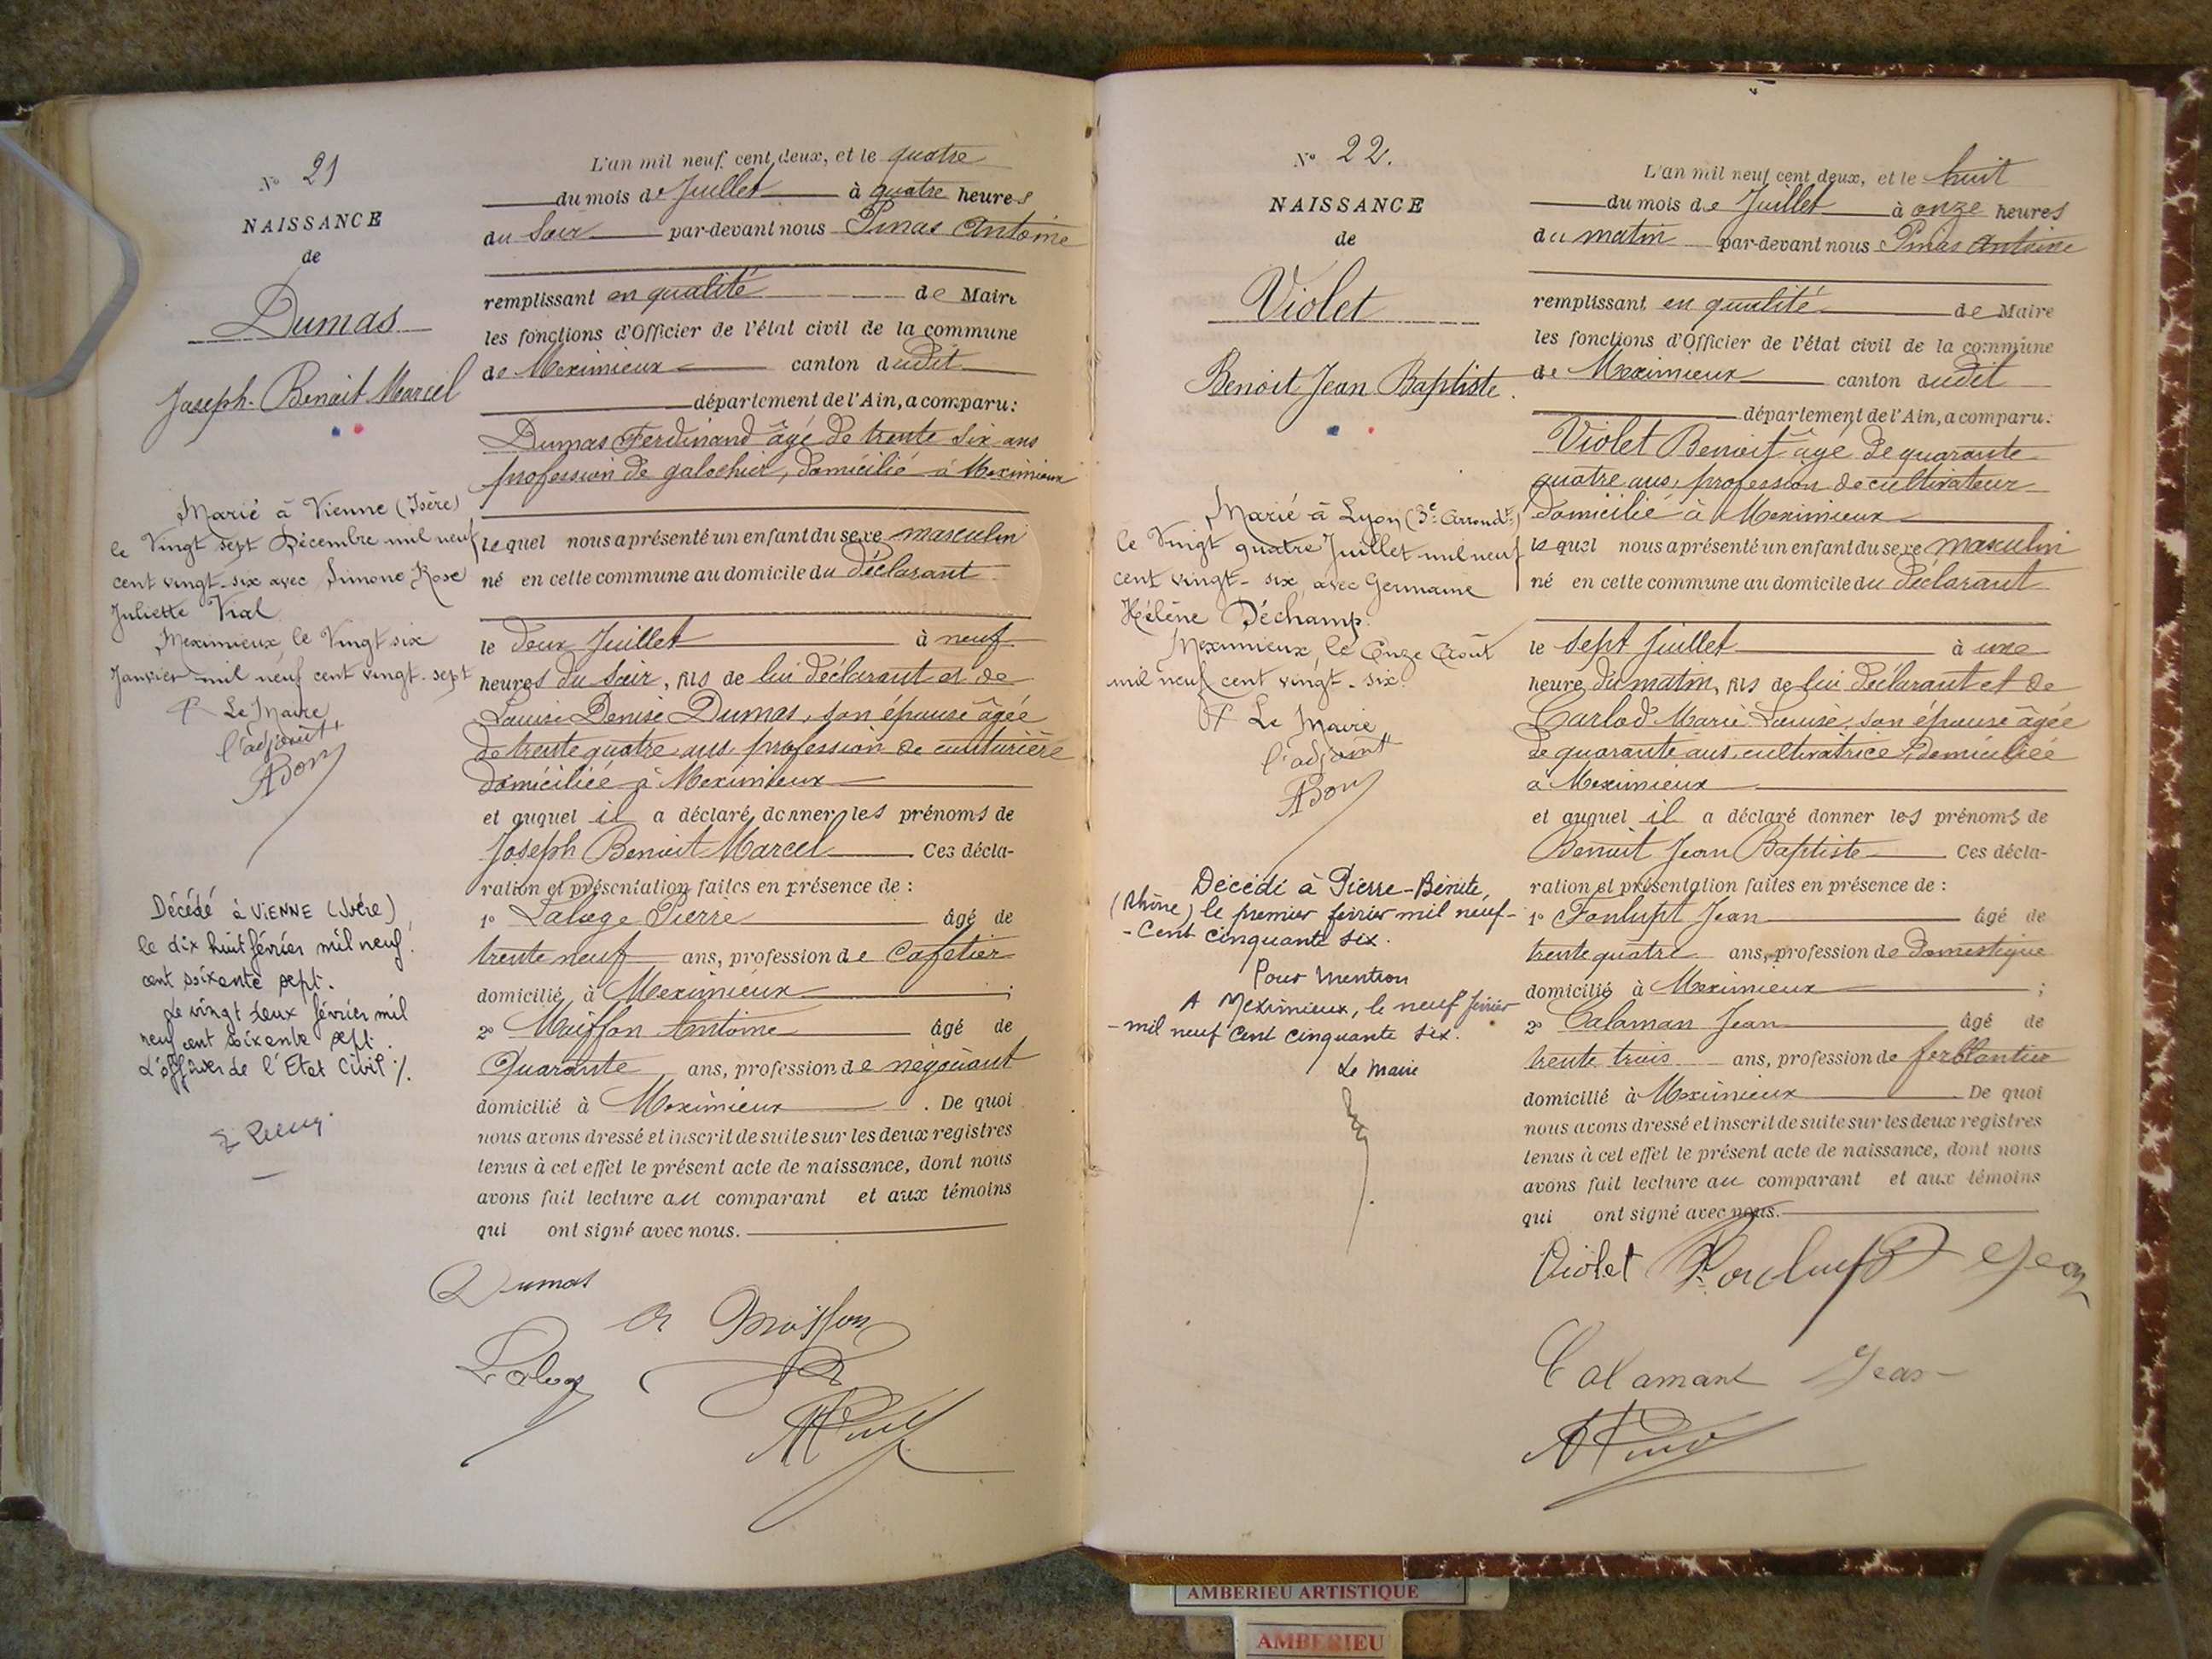 N° 21
NAISSANCE
de
Dumas
Joseph-Benoit Marcel
Marié à Vienne (Isère)
le Vingt sept Décembre mil neuf
cent vingt-six avec Simone Rose
Juliette Vial
Meximieux, le Vingt six
Janvier mil neuf cent vingt-sept
Le Maire
l'adjoint
Décédé à VIENNE (Isère)
le dix huit février mil neuf
cent soixante sept.
Le vingt deux février mil
neuf cent soixante sept.
L'officier de l'Etat Civil %.
L'an mil neuf cent deux, et le quatre
du mois de Juillet à quatre heures
du Soir par-devant nous Pinas Antoine
remplissant en qualité de Maire
les fonctions d'Officier de l'état civil de la commune
de Meximieux canton dudit
département de l'Ain, a comparu:
Dumas Ferdinand âgé de trente six ans
profession de galochier, domicilié à Meximieux
lequel nous a présenté un enfant du sexe masculin
né en cette commune au domicile du déclarant
le deux Juillet à neuf
heures du Soir, fils de lui déclarant et de
Louise Denise Dumas, son épouse âgée
de trente quatre ans profession de couturière
domiciliée à Meximieux
et auquel il a déclaré donner les prénoms de
Joseph Benoit Marcel Ces décla-
ration et présentation faites en présence de :
1° Laloge Pierre âgé de
trente neuf ans, profession de Cafetier
domicilié à Meximieux ;
2° Moiffon Antoine âgé de
Quarante ans, profession de négociant
domicilié à Meximieux . De quoi
nous avons dressé et inscrit de suite sur les deux registres
tenus à cet effet le présent acte de naissance, dont nous
avons fait lecture au comparant et aux témoins
qui ont signé avec nous.
Dumas
A Moiffon
Laloge
N° 22.
NAISSANCE
de
Violet
Benoit Jean Baptiste.
Marié à Lyon (3e Arrondt)
le Vingt quatre Juillet mil neuf
cent vingt-six, avec Germaine
Hélène Déchamp.
Meximieux, le Onze Août
mil neuf cent vingt-six.
Le Maire
l'adjoint
Décédé à Pierre-Bénite,
(Rhône) le premier février mil neuf-
-Cent cinquante six.
Pour mention
A Meximieux, le neuf février
-mil neuf Cent cinquante six.
Le Maire
L'an mil neuf cent deux, et le huit
du mois de Juillet à onze heures
du matin par-devant nous Pinas Antoine
remplissant en qualité de Maire
les fonctions d'Officier de l'état civil de la commune
de Meximieux canton dudit
département de l'Ain, a comparu:
Violet Benoit âgé de quarante
quatre ans, profession de cultivateur
domicilié à Meximieux
lequel nous a présenté un enfant du sexe masculin
né en cette commune au domicile du déclarant
le sept Juillet à une
heure du matin, fils de lui déclarant et de
Carlod Marie Louise, son épouse âgée
de quarante ans, cultivatrice, domiciliée
à Meximieux
et auquel il a déclaré donner les prénoms de
Benoit Jean Baptiste Ces décla-
ration et présentation faites en présence de :
1° Fonlupt Jean âgé de
trente quatre ans, profession de Domestique
domicilié à Meximieux ;
2° Calaman Jean âgé de
trente trois ans, profession de ferblantier
domicilié à Meximieux De quoi
nous avons dressé et inscrit de suite sur les deux registres
tenus à cet effet le présent acte de naissance, dont nous
avons fait lecture au comparant et aux témoins
qui ont signé avec nous.
Violet Fonlupt Jean
Calamant Jean
AMBERIEU ARTISTIQUE
AMBERIEU